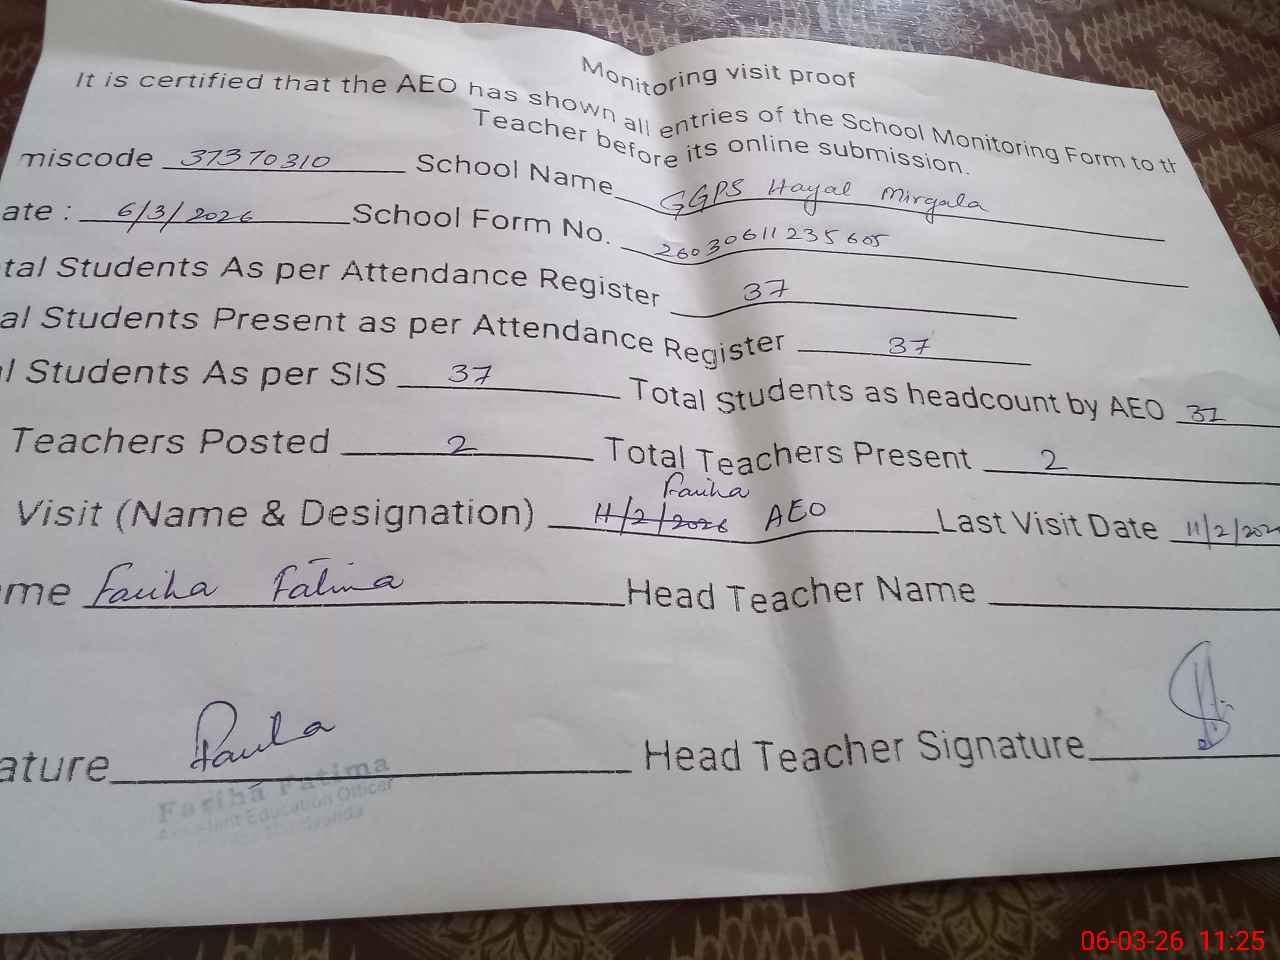 Monitoring visit proof
It is certified that the AEO has shown all entries of the School Monitoring Form to th
Teacher before its online submission.
miscode 37370310 School Name GGPS Hayal Mirgala
ate : 6/3/2026 School Form No. 26030611235605
tal Students As per Attendance Register 37
al Students Present as per Attendance Register 37
l Students As per SIS 37 Total Students as headcount by AEO 37
Teachers Posted 2 Total Teachers Present 2
Visit (Name & Designation) 11/2/2026 Fariha AEO Last Visit Date 11/2/202
me Fariha Fatima Head Teacher Name
ature Fariha Head Teacher Signature
Fariha Fatima
Assistant Education Officer
06-03-26 11:25